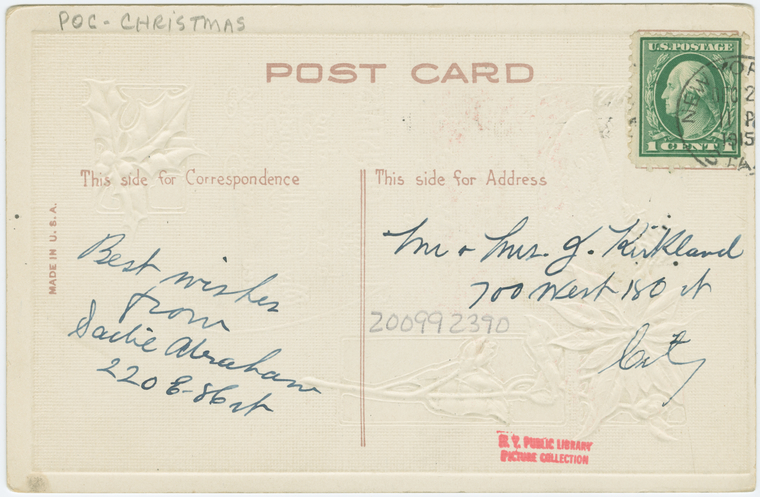 POC - CHRISTMAS
POST CARD
U.S. POSTAGE
1 CENT 1
NEW
1915
This side for Correspondence
This side for Address
MADE IN U.S.A.
Best wishes
from
Sadie Abraham
220 E-86 st
Mr + Mrs. J. Kirkland
700 West 180 st
City
200992390
N. Y. PUBLIC LIBRARY
PICTURE COLLECTION